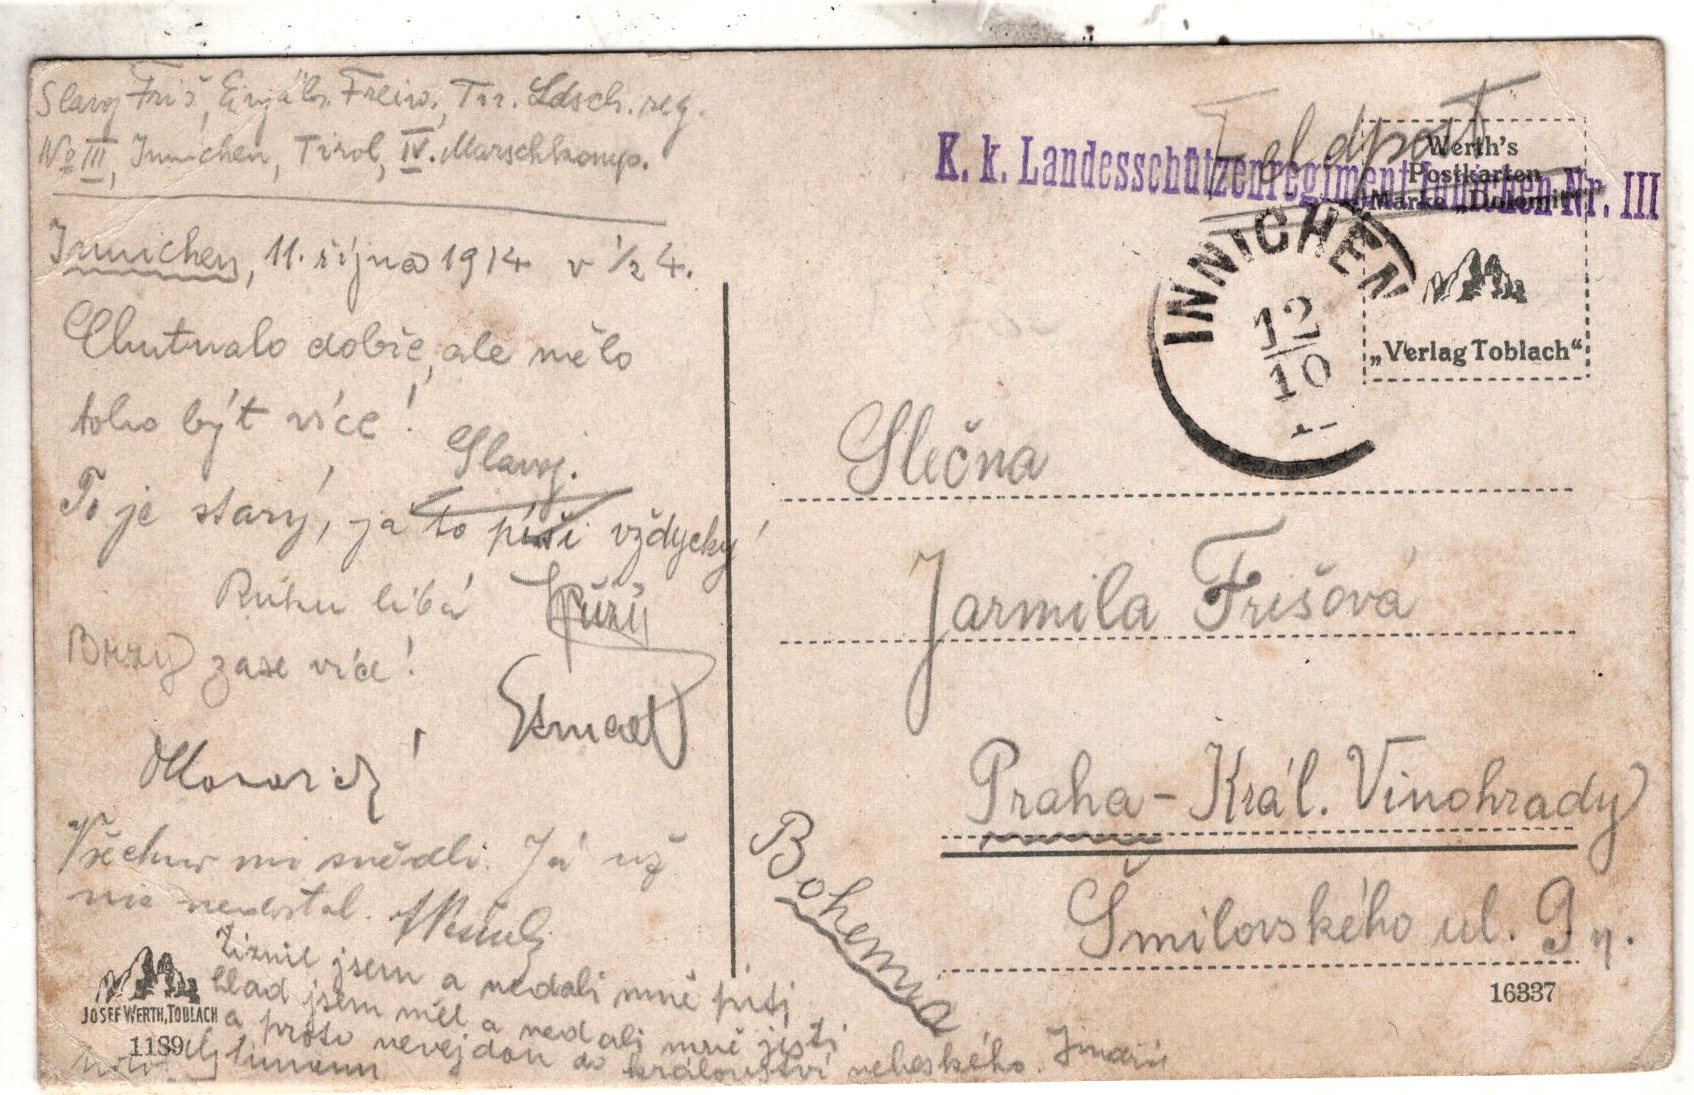 Slavoj Friš, Einjähr. Freiw., Tir. Ldsch. reg.
No III, Innichen, Tirol, IV. Marschkomp.
Innichen, 11. října 1914 v ½ 4.
Chutnalo dobře, ale mělo
toho být více!
Slavoj.
To je starý, já to píši vždycky!
Ruku líbá
Brzy zase více!
Všechno mi snědli. Já už
nic nedostal.
Žíznil jsem a nedali mně píti
hlad jsem měl a nedali mně jísti
a proto nevejdou do království nebeského.
Feldpost
K. k. Landesschützenregiment Innichen Nr. III
Werth's
Postkarten
Marke „Dolomit"
„Verlag Toblach"
INNICHEN
12
10
Slečna
Jarmila Frišová
Praha - Král. Vinohrady
Šmilovského ul. 9
Bohemia
JOSEF WERTH, TOBLACH
1189
16337